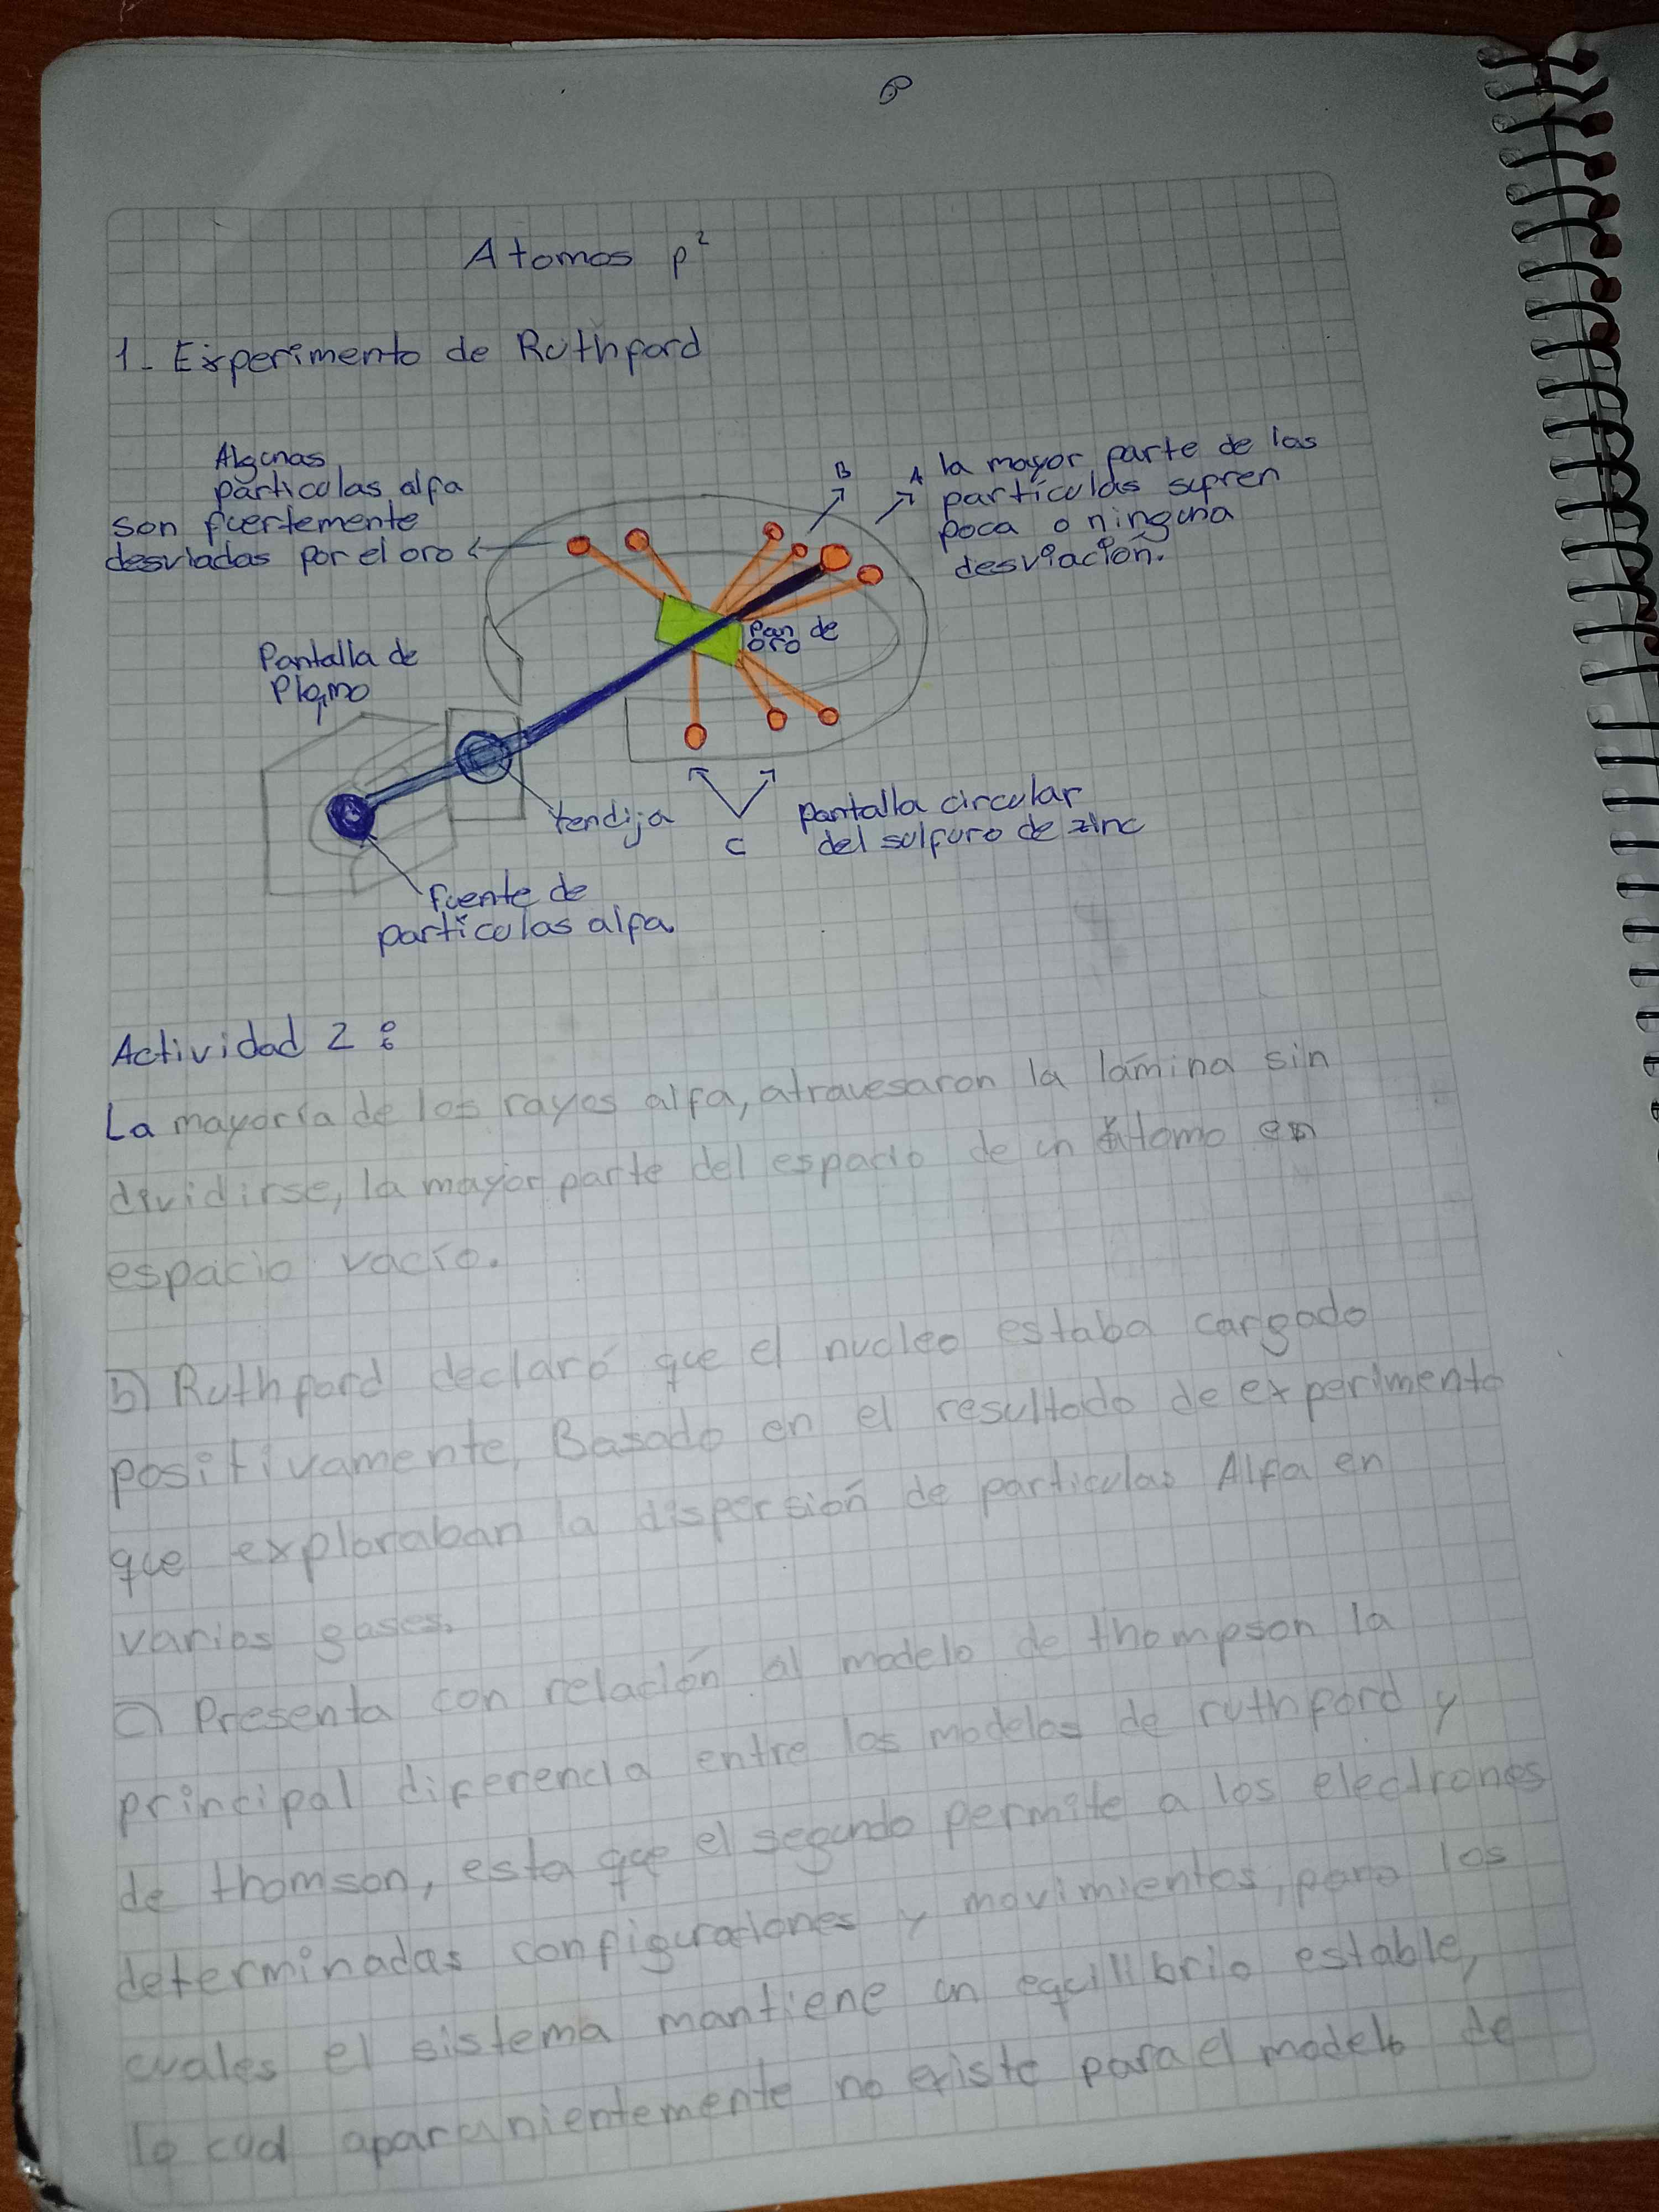 Atomos p²
1- Experimento de Ruthford
Algunas
particulas alfa
son fuertemente
desviadas por el oro
B
A la mayor parte de las
partículas sufren
poca o ninguna
desviación.
Pan de
oro
Pantalla de
Plomo
rendija
C
pantalla circular
del sulfuro de zinc
fuente de
particulas alfa.
Actividad 2:
La mayoría de los rayos alfa, atravesaron la lámina sin
dividirse, la mayor parte del espacio de un átomo en
espacio vacío.
b) Ruthford declaró que el nucleo estaba cargado
positivamente, Basado en el resultado de experimento
que exploraban la dispersión de particulas Alfa en
varios gases.
c) Presenta con relación al modelo de thompson la
principal diferencia entre los modelos de ruthford y
de thomson, esta que el segundo permite a los electrones
determinadas configuraciones y movimientos, para los
cuales el sistema mantiene un equilibrio estable,
lo cual no existe para el modelo de